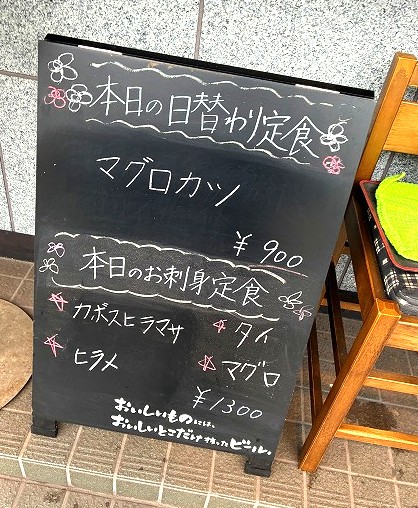 本日の日替わり定食
マグロカツ
¥900
本日のお刺身定食
カボスヒラマサ
タイ
ヒラメ
マグロ
¥1300
おいしいものには、
おいしいとこだけ搾ったビール。